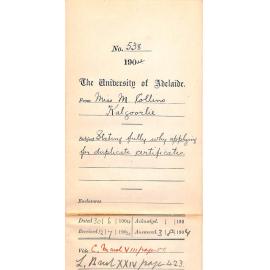 No. 538
1904
The University of Adelaide.
From Miss M. Collins
Kalgoorlie
Subject Stating fully why applying
for duplicate certificates
Enclosures
Dated 30/6/1904 Acknowledged. / 190
Received 12/7/1904 Answered 3/8/1904
Vide C. Book VIII page
L. Book XXIV page 423